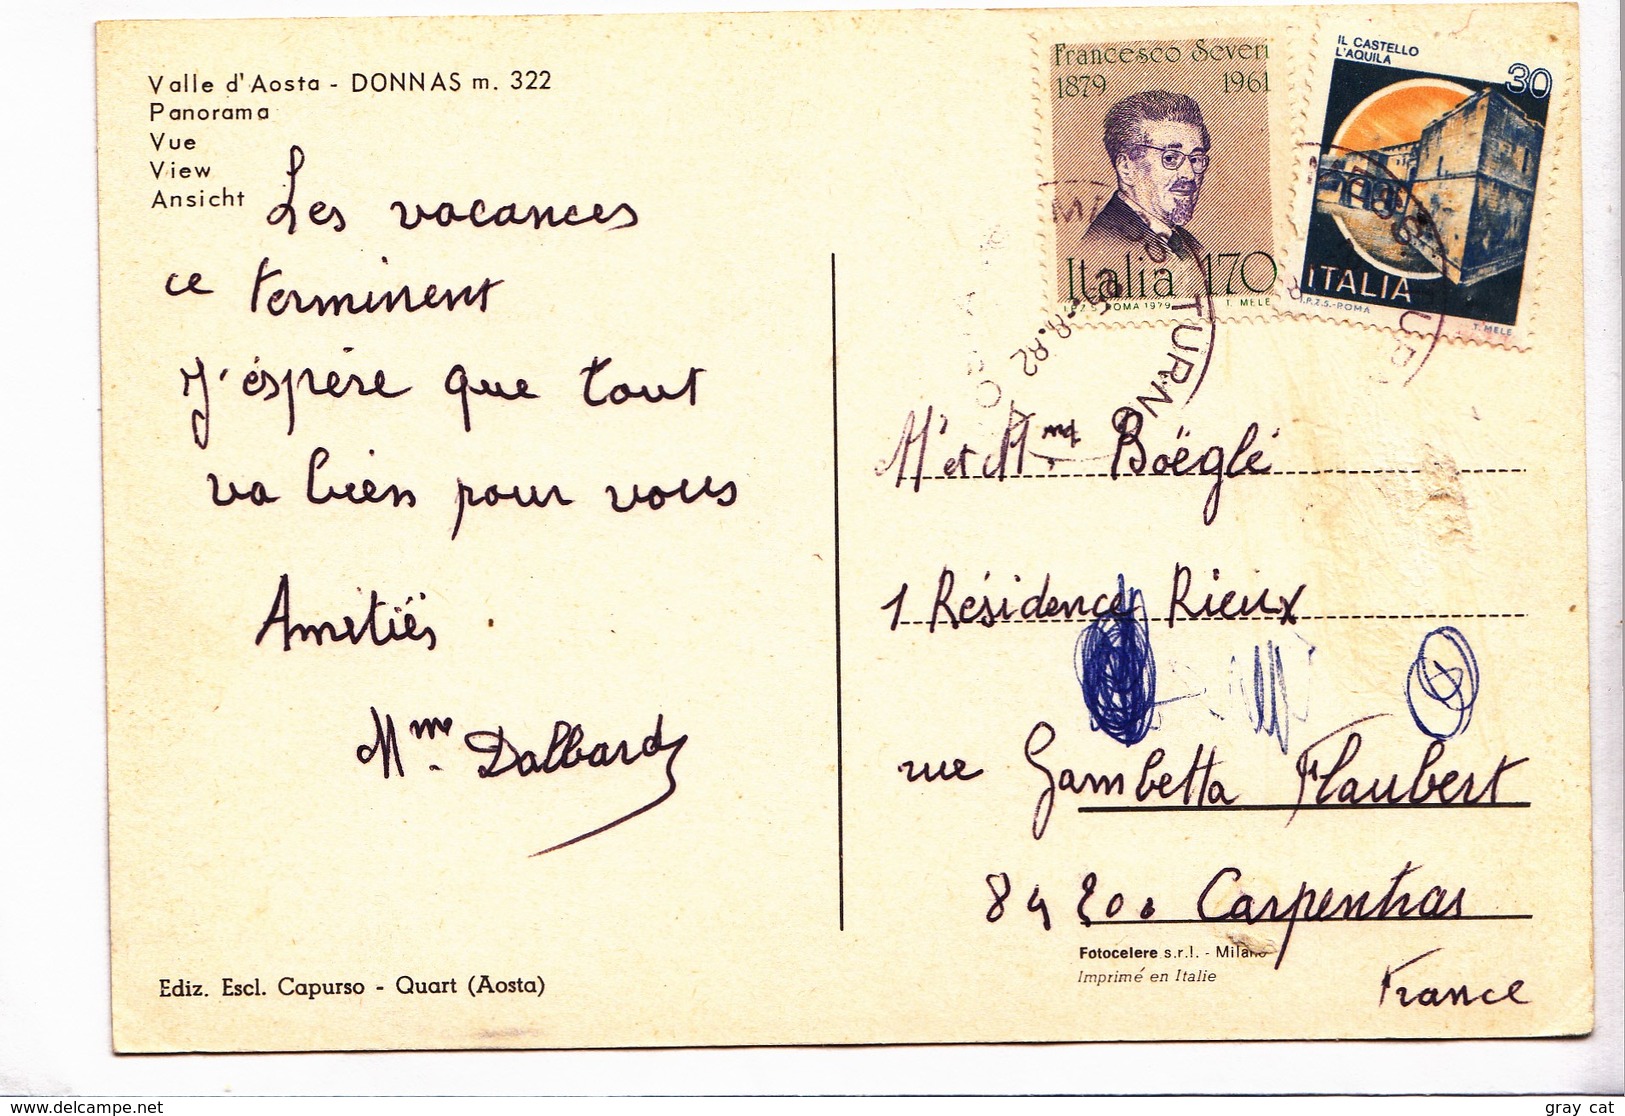 Valle d'Aosta - DONNAS m. 322
Panorama
Vue
View
Ansicht
Les vacances
ce terminent
J'éspère que tout
va bien pour vous
Amitiés
Mme Dalbard
Ediz. Escl. Capurso - Quart (Aosta)
Francesco Severi
1879 1961
Italia 170
I.P.Z.S. ROMA 1979 T. MELE
IL CASTELLO
L'AQUILA
30
ITALIA
I.P.Z.S.-ROMA
T. MELE
TURNO
M et Mme Boëglé
1 Résidence Rieux
rue Gambetta Flaubert
84200 Carpentras
France
Fotocelere s.r.l. - Milano
Imprimé en Italie
www.delcampe.net
gray_cat